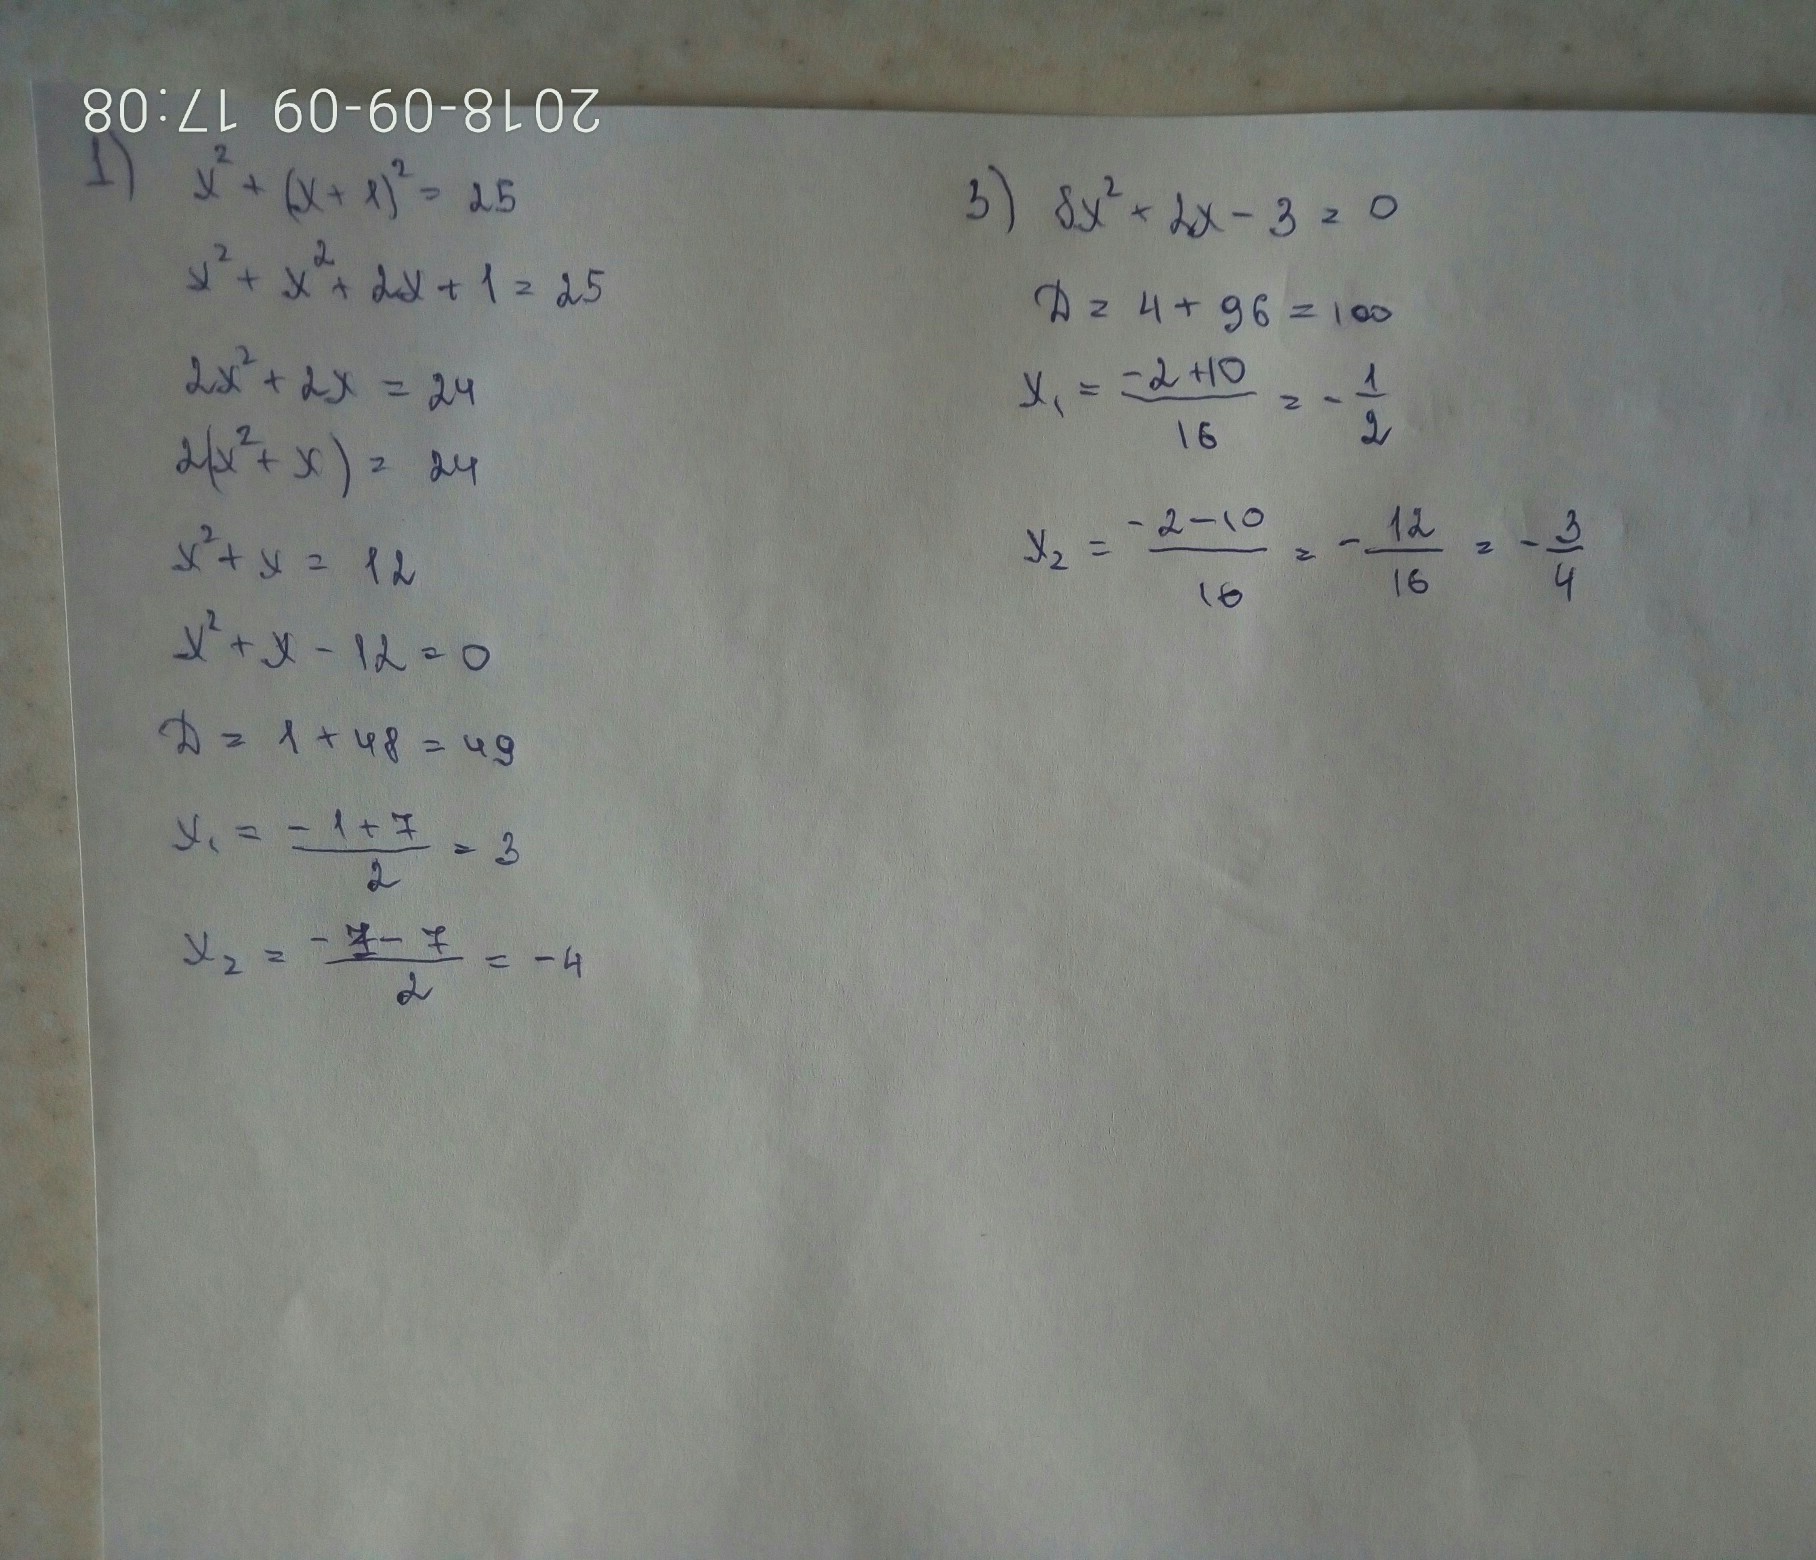 2018-09-09 17:08
1) x² + (x + 1)² = 25
x² + x² + 2x + 1 = 25
2x² + 2x = 24
2(x² + x) = 24
x² + x = 12
x² + x - 12 = 0
D = 1 + 48 = 49
x₁ = (-1 + 7)/2 = 3
x₂ = (-1 - 7)/2 = -4
3) 8x² + 2x - 3 = 0
D = 4 + 96 = 100
x₁ = (-2 + 10)/16 = -1/2
x₂ = (-2 - 10)/16 = -12/16 = -3/4